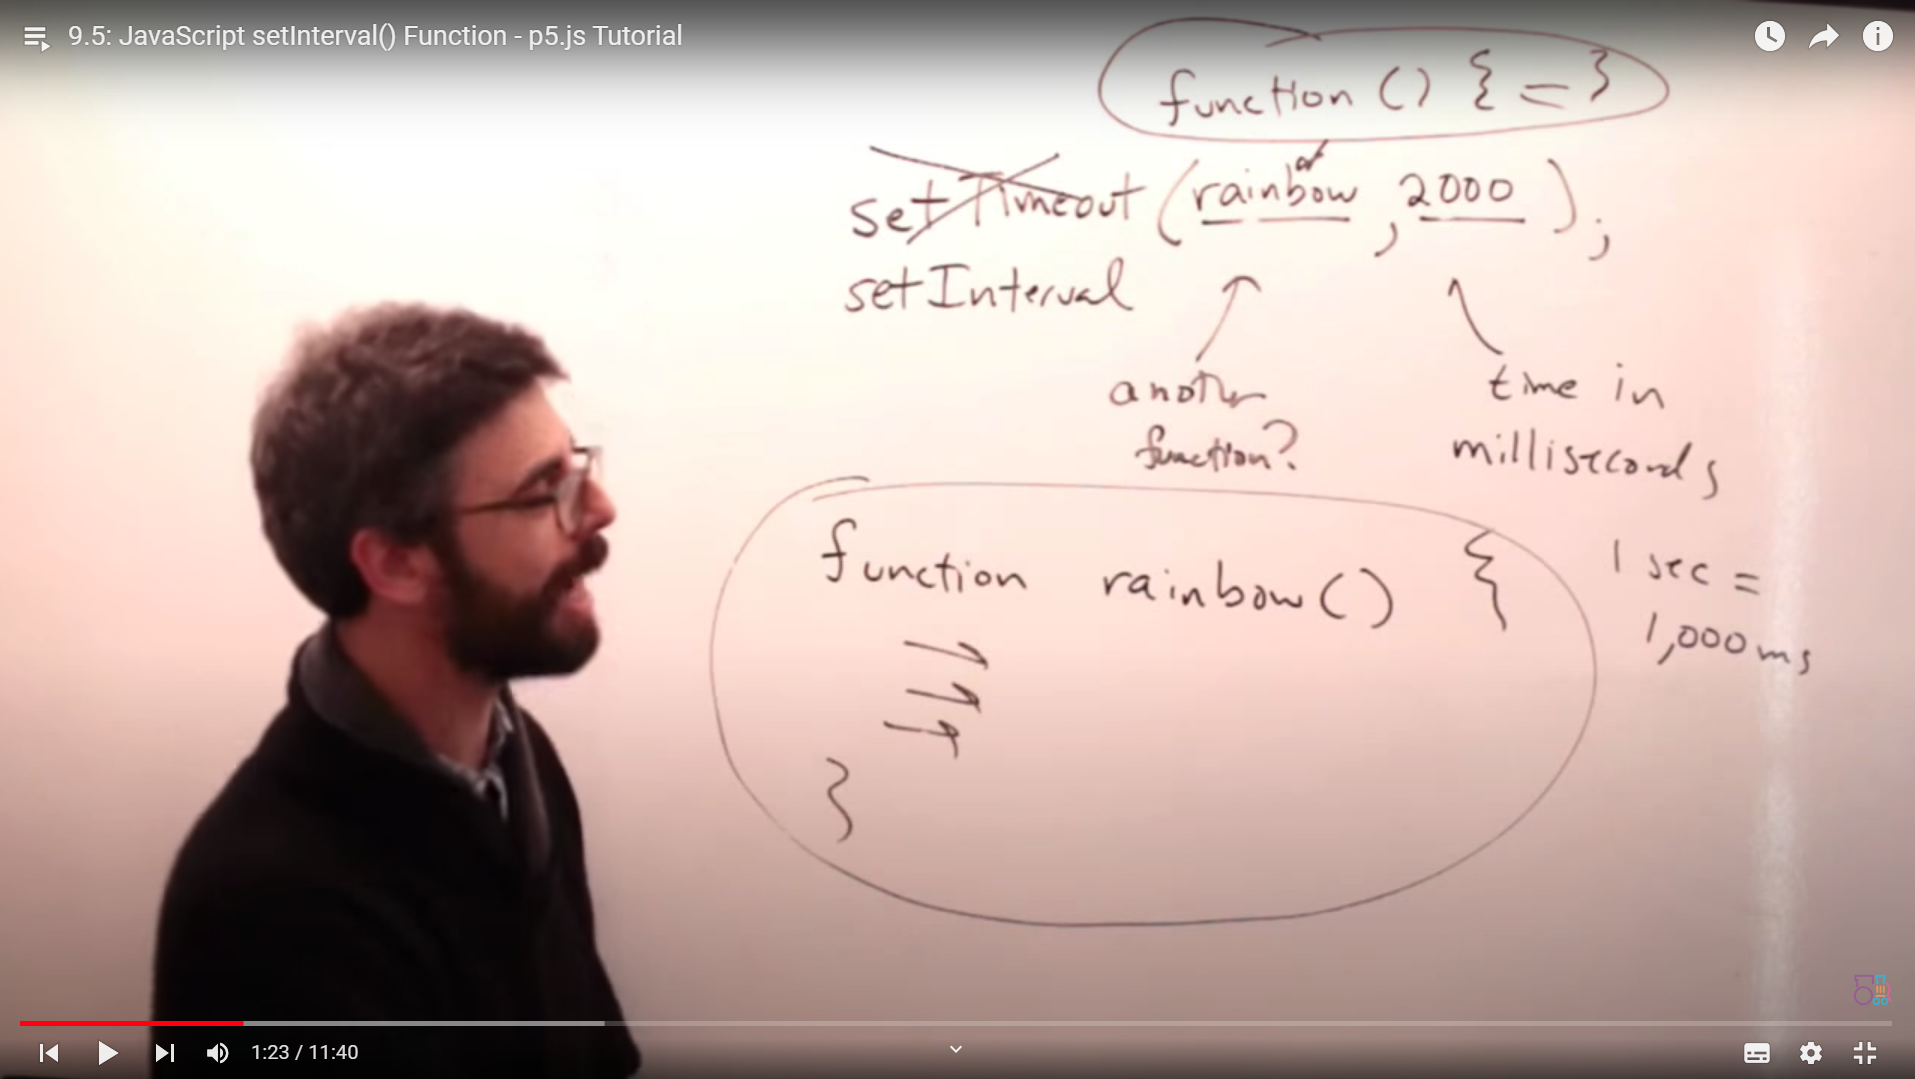 9.5: JavaScript setInterval() Function - p5.js Tutorial
function () { = }
setTimeout (rainbow, 2000);
setInterval
another
function?
time in
milliseconds
function rainbow() {
}
1 sec =
1,000ms
1:23 / 11:40